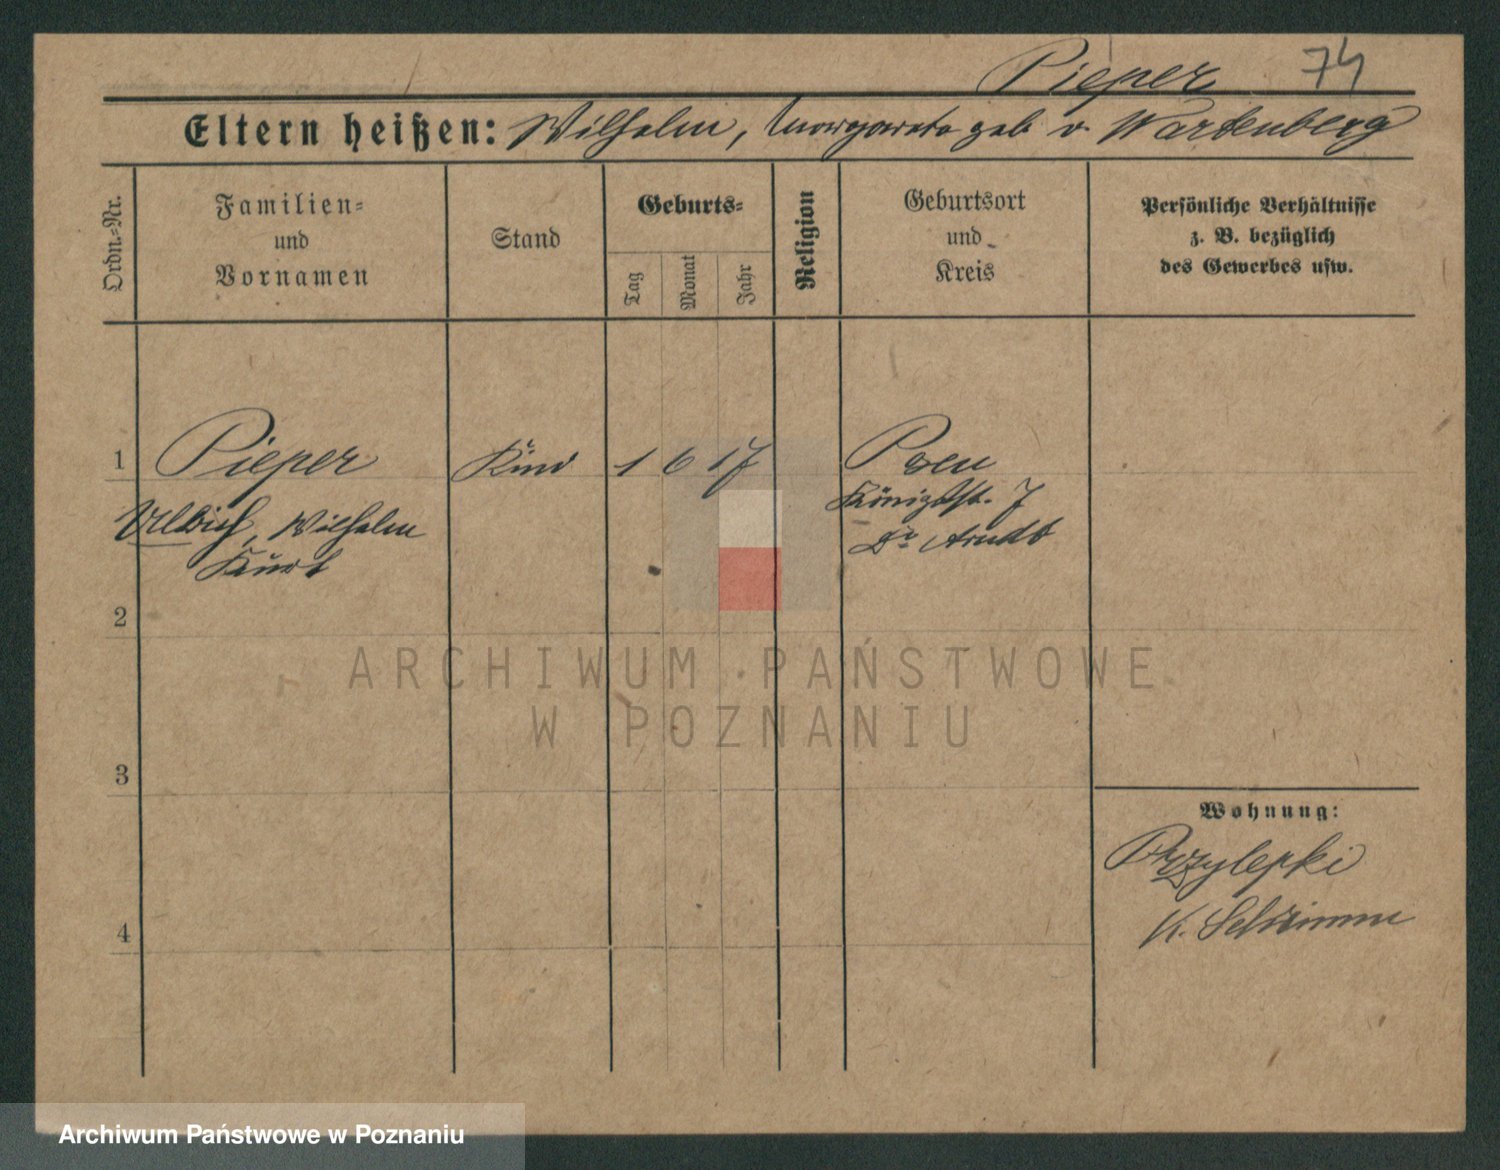 Pieper 74
Eltern heißen: Wilhelm, Margarete geb v. Wartenberg
Ordn.=Nr.
Familien=
und
Vornamen
Stand
Geburts=
Tag
Monat
Jahr
Religion
Geburtsort
und
Kreis
Persönliche Verhältnisse
z. B. bezüglich
des Gewerbes usw.
1 Pieper Kind 1 6 17 Posen
Ulrich, Wilhelm
Kurt
Königstr. 7
Dr Arndt
2
3
4
Wohnung:
Przylepki
K. Schrimm
ARCHIWUM PAŃSTWOWE
W POZNANIU
Archiwum Państwowe w Poznaniu